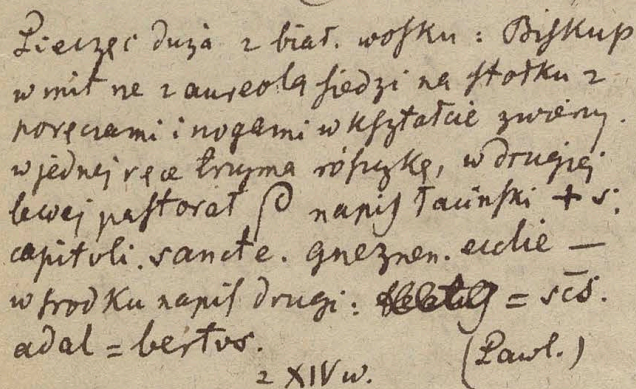 Pieczęć duża z biał. wosku : Biskup
w mitrze z aureolą siedzi na stołku z
poręczami i nogami w kształcie zwierz.
w jednej ręce trzyma różyczkę, w drugiej
lewej pastorał napis łaciński + s.
capituli. sancte. gneznen. ecclie —
w środku napis drugi : = sc̄s.
adal = bertvs.
z XIV w. (Pawl.)